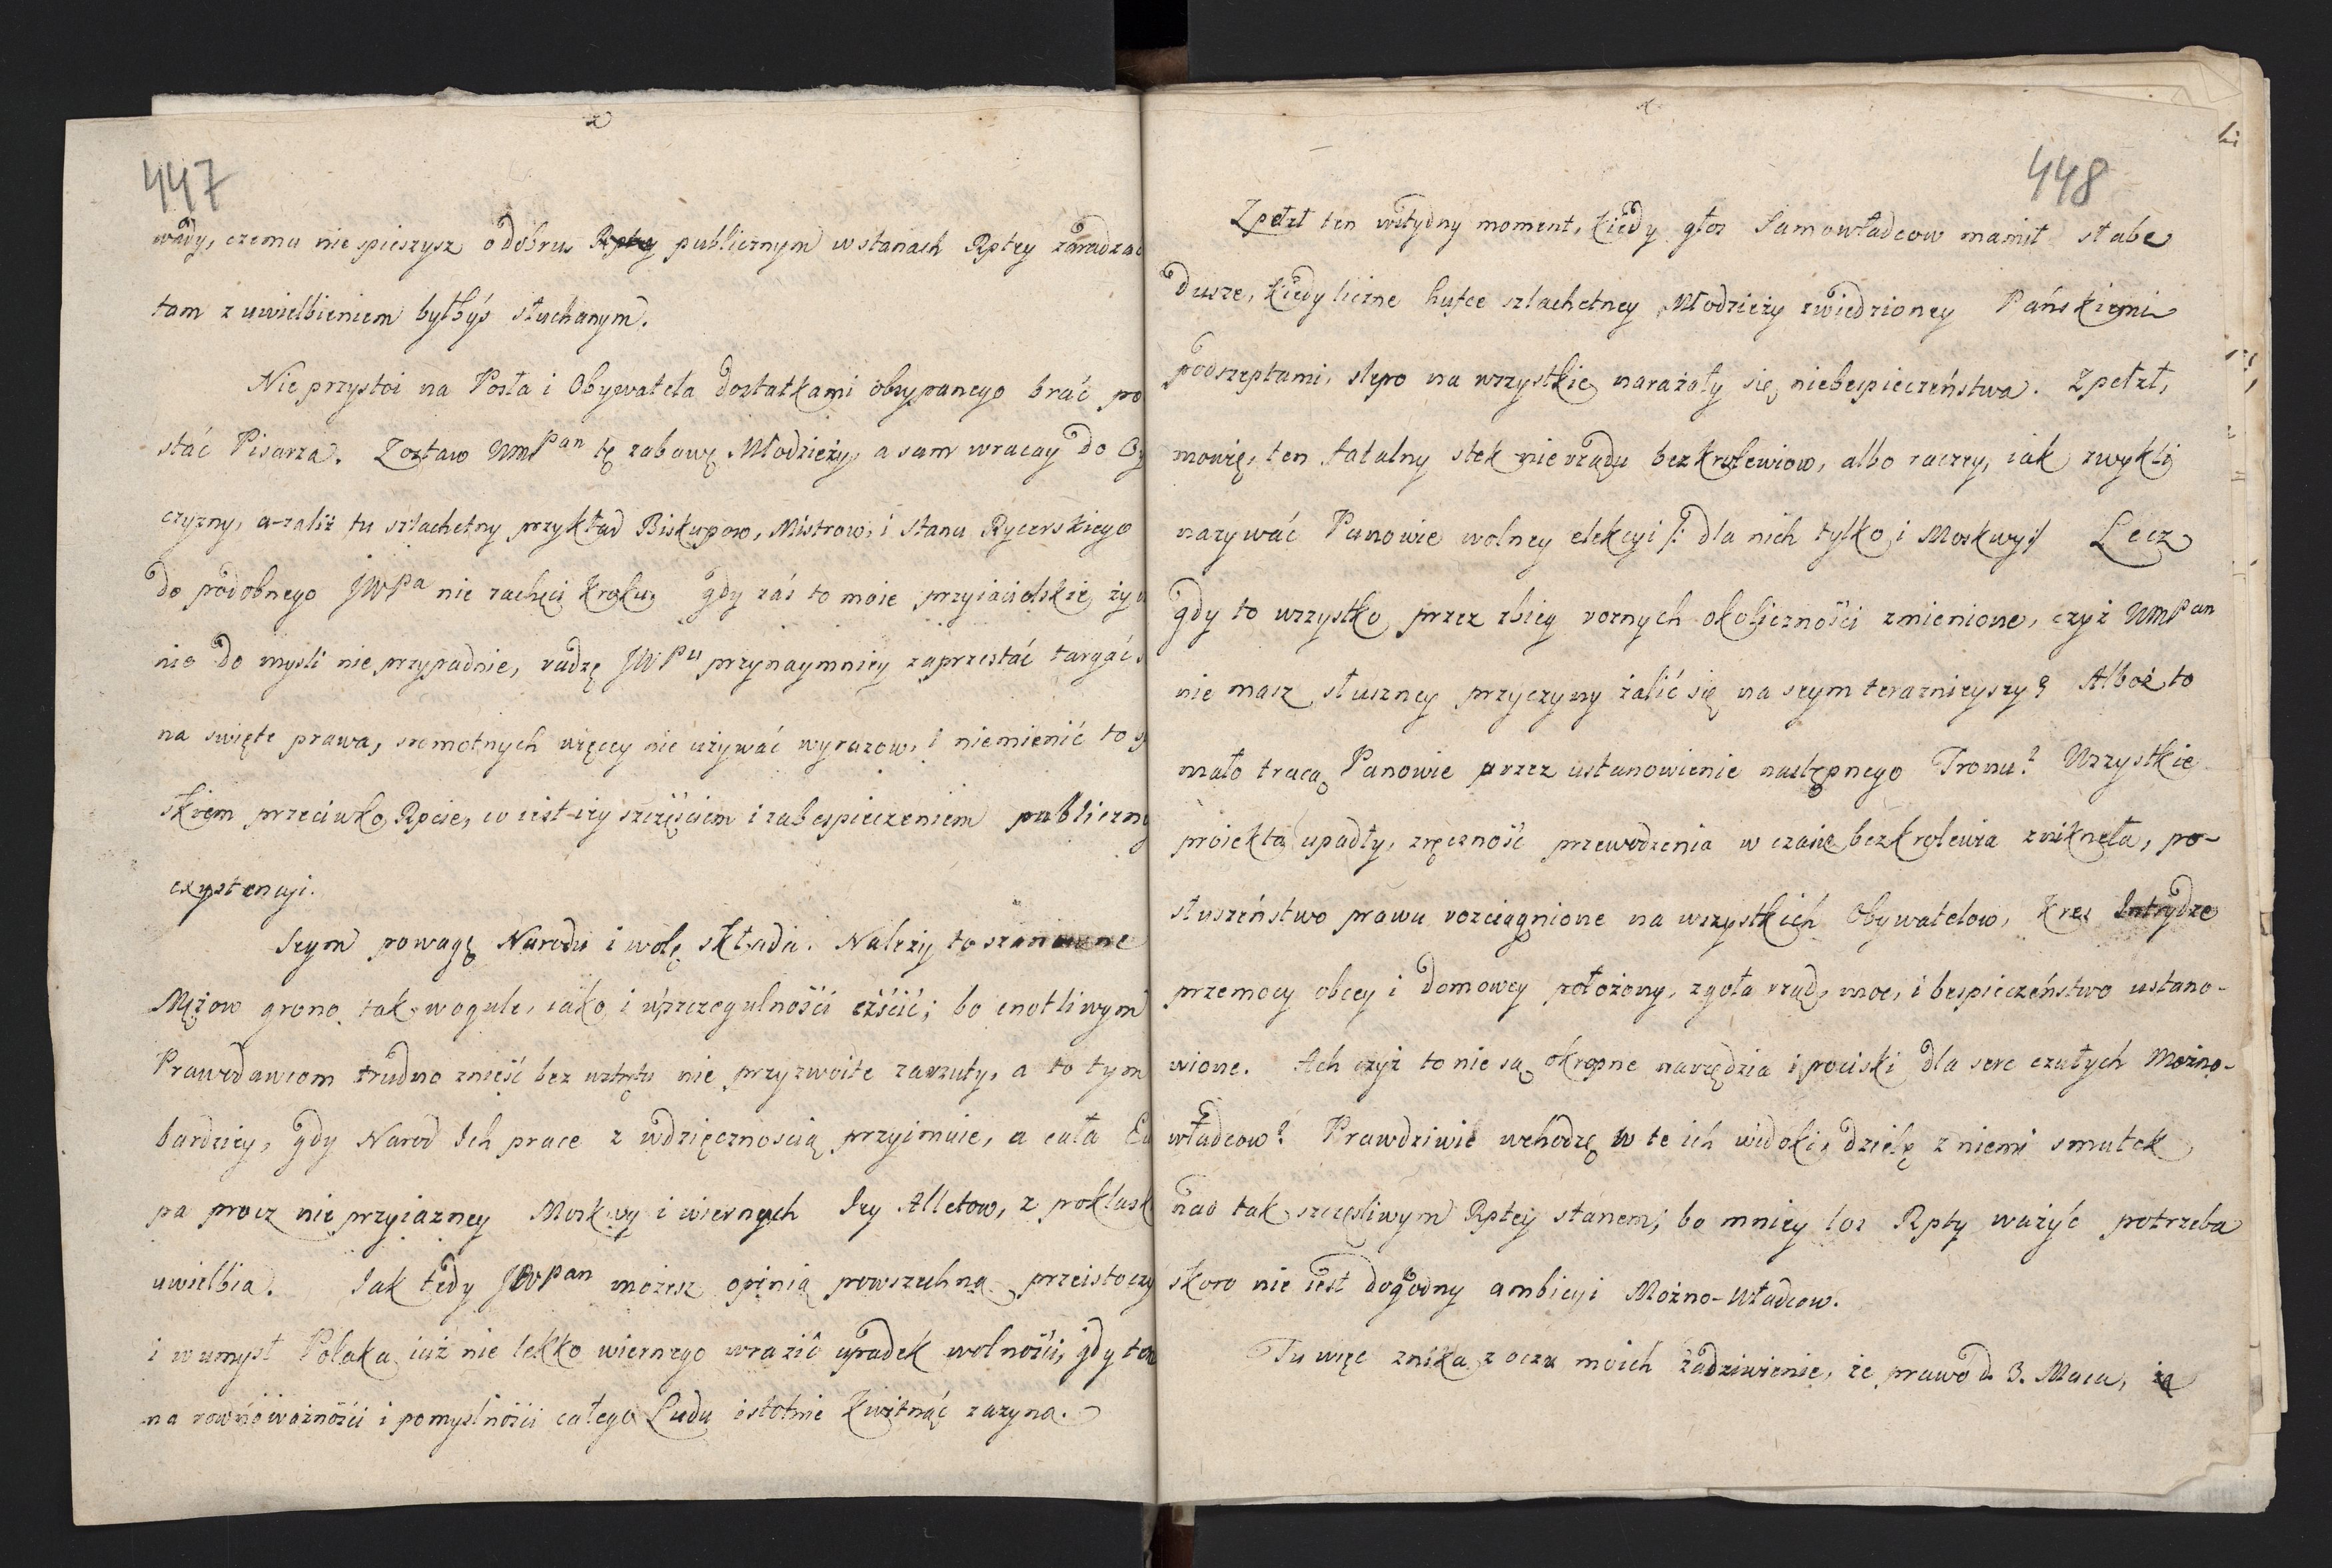 447
wady, czemu nie spieszysz o dobru Rptey publicznym w stanach Rptey zaradzac
tam z uwielbieniem byłbyś słuchanym.
Nie przystoi na Posła i Obywatela dostatkami obsypanego brać po
stać Pisarza. Zostaw WmPan tę zabawę Młodzieży, a sam wracay do Oy
czyzny, a-zaliż tu szlachetny przykład Biskupow, Mistrow, i stanu Rycerskiego
do podobnego JWPa nie zachęci kroku, gdy zaś to moie przyiacielskie życ
nie do mysli nie przypadnie, radzę JWPu przynaymniey zaprzestać targać s
na swięte prawa, sromotnych więcey nie używać wyrazow, i niemienić to s
skiem przeciwko Rpcie, co iest iey szczęściem i zabespieczeniem publiczny
exystencyi.
Seym powagę Narodu i wolę składa. Należy to szanowne
Mężow grono tak w ogule, iako i w szczegulności czścić; bo cnotliwym
Prawodawcom trudno znieść bez wstrętu nie przyzwoite zarzuty, a to tym
bardziey, gdy Narod Ich prace z wdzięcznoscią przyimuie, a cała Eu
pa procz nie przyiazney Moskwy i wiernych Iey Alletow, z poklask
uwielbia. Jak tedy JWPan możesz opinią powszechną przeistoczy
i w umysł Polaka iuż nie lekko wiernego wrazić upadek wolności, gdy ta
na rownoważności i pomyslności całego Ludu istotnie kwitnąć zaczyna.
448
Zpełzł ten wstydny moment, kiedy głos Samowładcow mamił słabe
dusze, kiedy liczne hufce szlachetney Młodzieży zwiedzioney Pańskiemi
podszeptami, slepo na wszystkie narażały się niebespieczeństwa. Zpełzł,
mowię, ten fatalny stek nierządu bezkrolewiow, albo raczey, iak zwykli
nazywać Panowie wolney elekcyi /: dla nich tylko i Moskwy:/ Lecz
gdy to wszystko przez zbieg roznych okoliczności zmienione, czyż WmPan
nie masz słuszney przyczyny żalić się na seym teraznieyszy? Alboż to
mało tracą Panowie przez ustanowienie następnego Tronu? Wszystkie
proiekta upadły, zręczność przewodzenia w czasie bezkrolewia zniknęła, po-
słuszeństwo prawu rozciągnione na wszystkich Obywatelow, kres Intrydze
przemocy obcey i domowey położony, zgoła rząd, moc, i bespieczeństwo ustano-
wione. Ach czyż to nie są okropne narzędzia i pociski dla serc czułych Możno-
władcow? Prawdziwie wchodzę w te ich widoki, dzielę z niemi smutek
nad tak szczęsliwym Rptey stanem; bo mniey los Rpty ważyć potrzeba
skoro nie iest dogodny ambicyi Możno-Władcow.
Tu więc znika z oczu moich zadziwienie, że prawo d. 3. Maia,